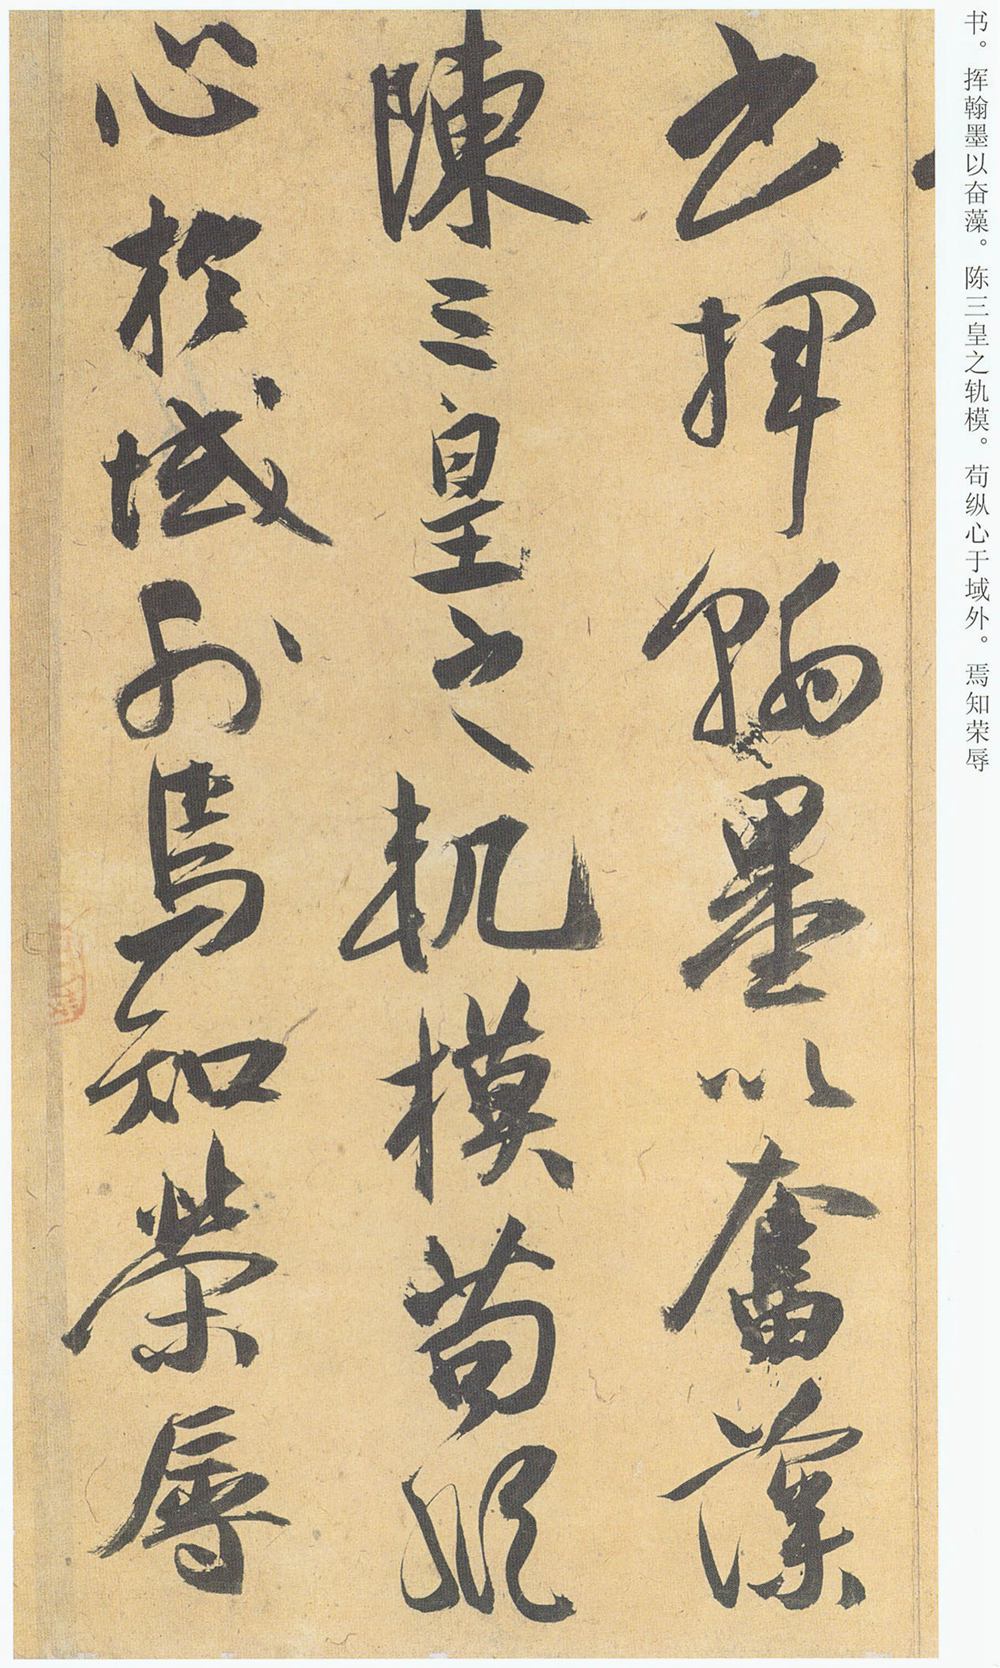 书。挥翰墨以奋藻。陈三皇之轨模。苟纵心于域外。焉知荣辱
书揮翰墨以奮藻
陳三皇之軌模苟縱
心於域外焉知榮辱